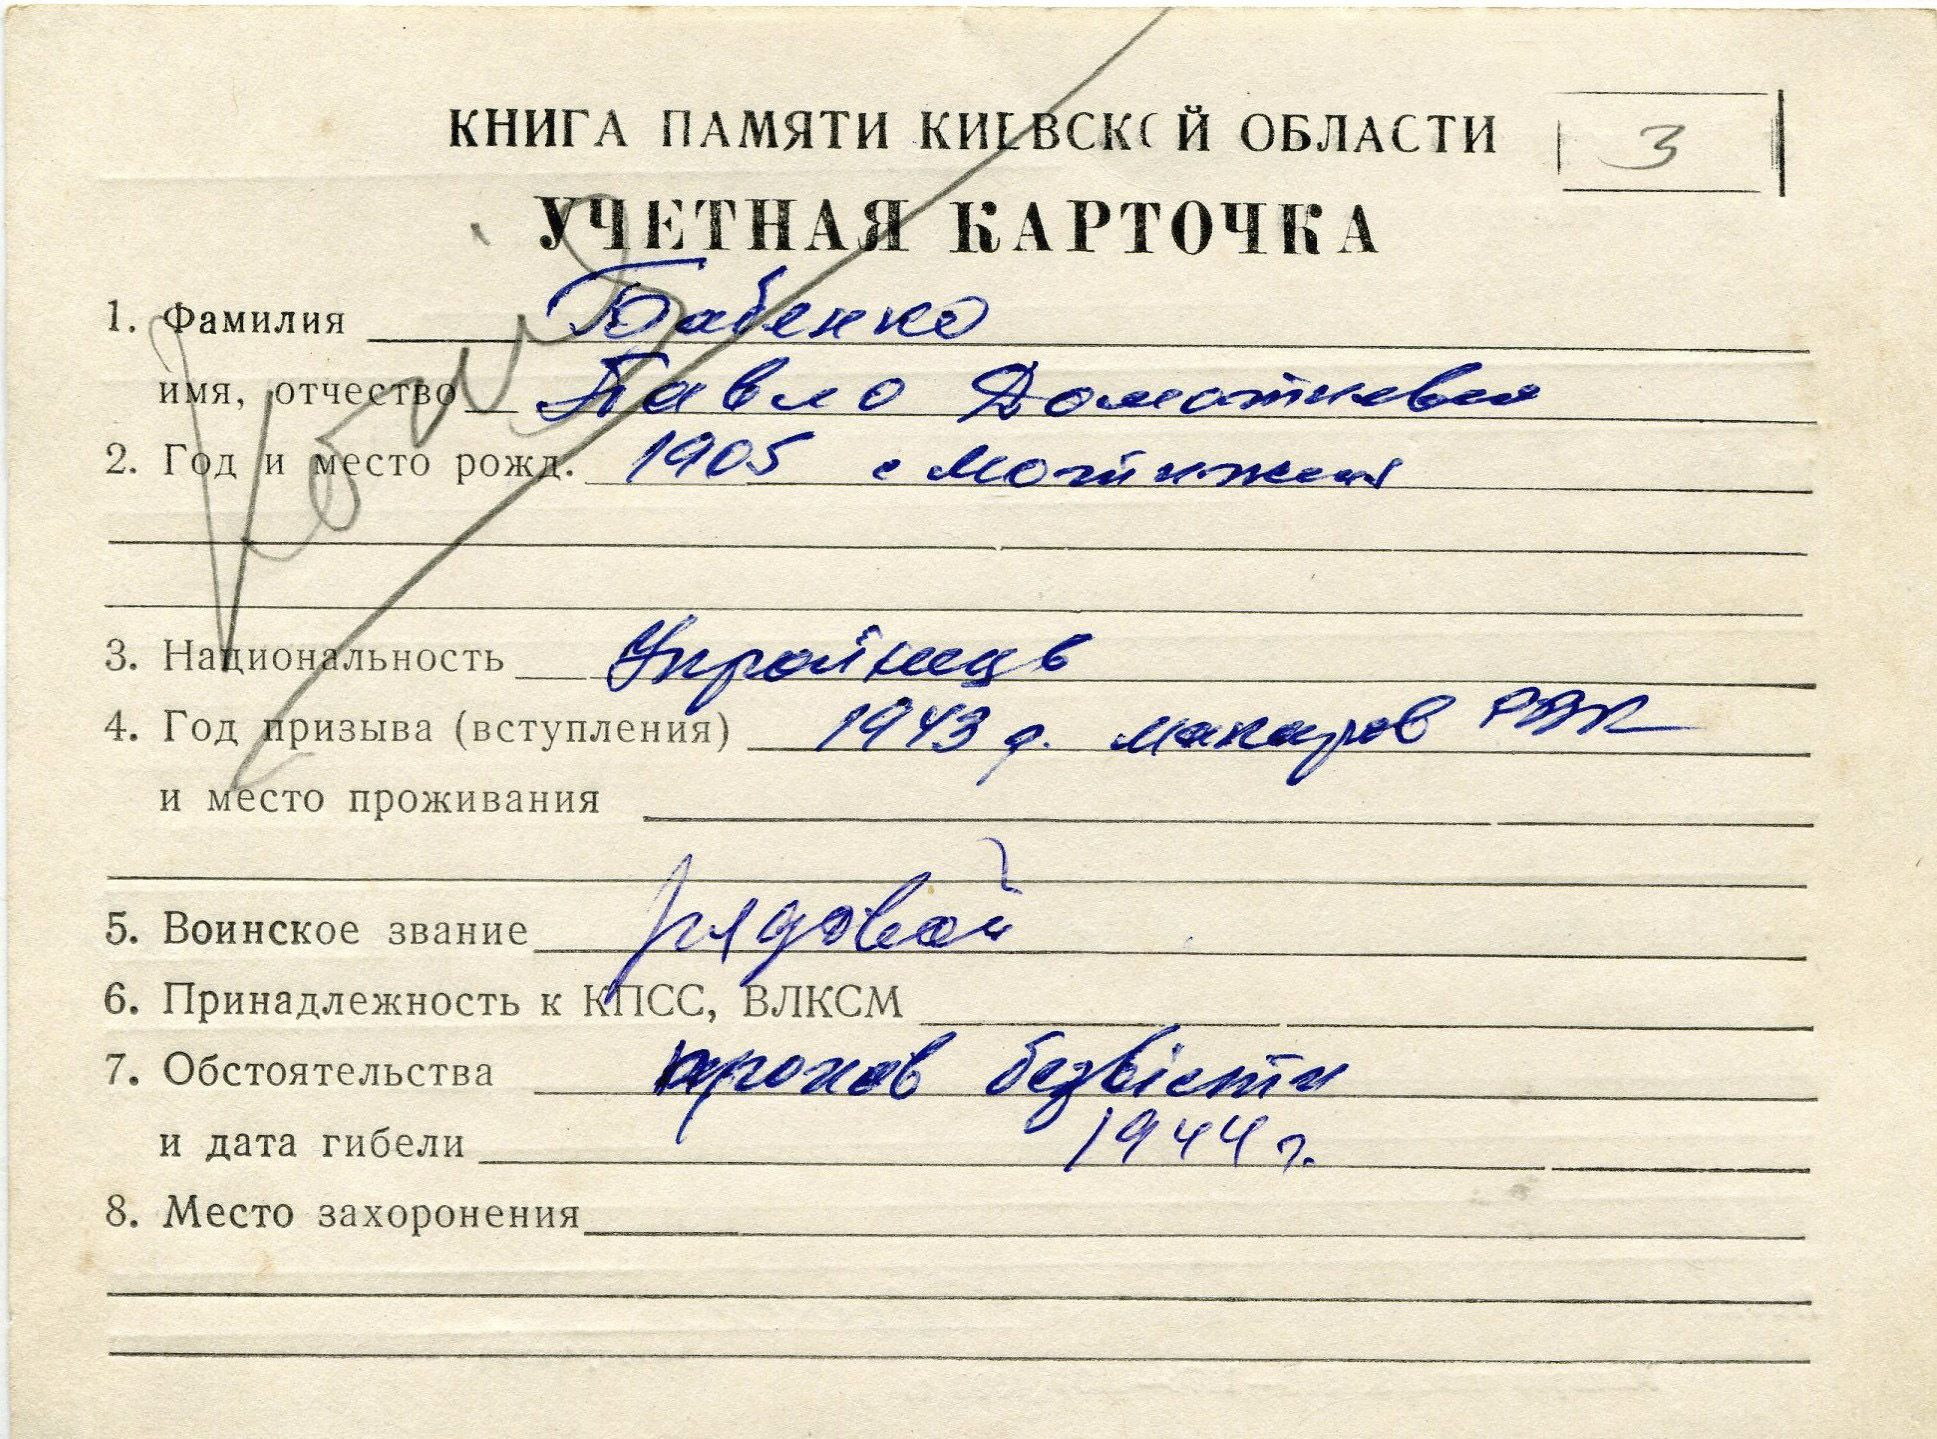 КНИГА ПАМЯТИ КИЕВСКОЙ ОБЛАСТИ
3
УЧЕТНАЯ КАРТОЧКА
1. Фамилия Бабенко
имя, отчество Павло
2. Год и место рожд. 1905 с Мотижин
3. Национальность Українець
4. Год призыва (вступления) 1943 р. Макаров РВК
и место проживания
5. Воинское звание рядовой
6. Принадлежность к КПСС, ВЛКСМ
7. Обстоятельства пропав безвісти
и дата гибели 1944 г.
8. Место захоронения